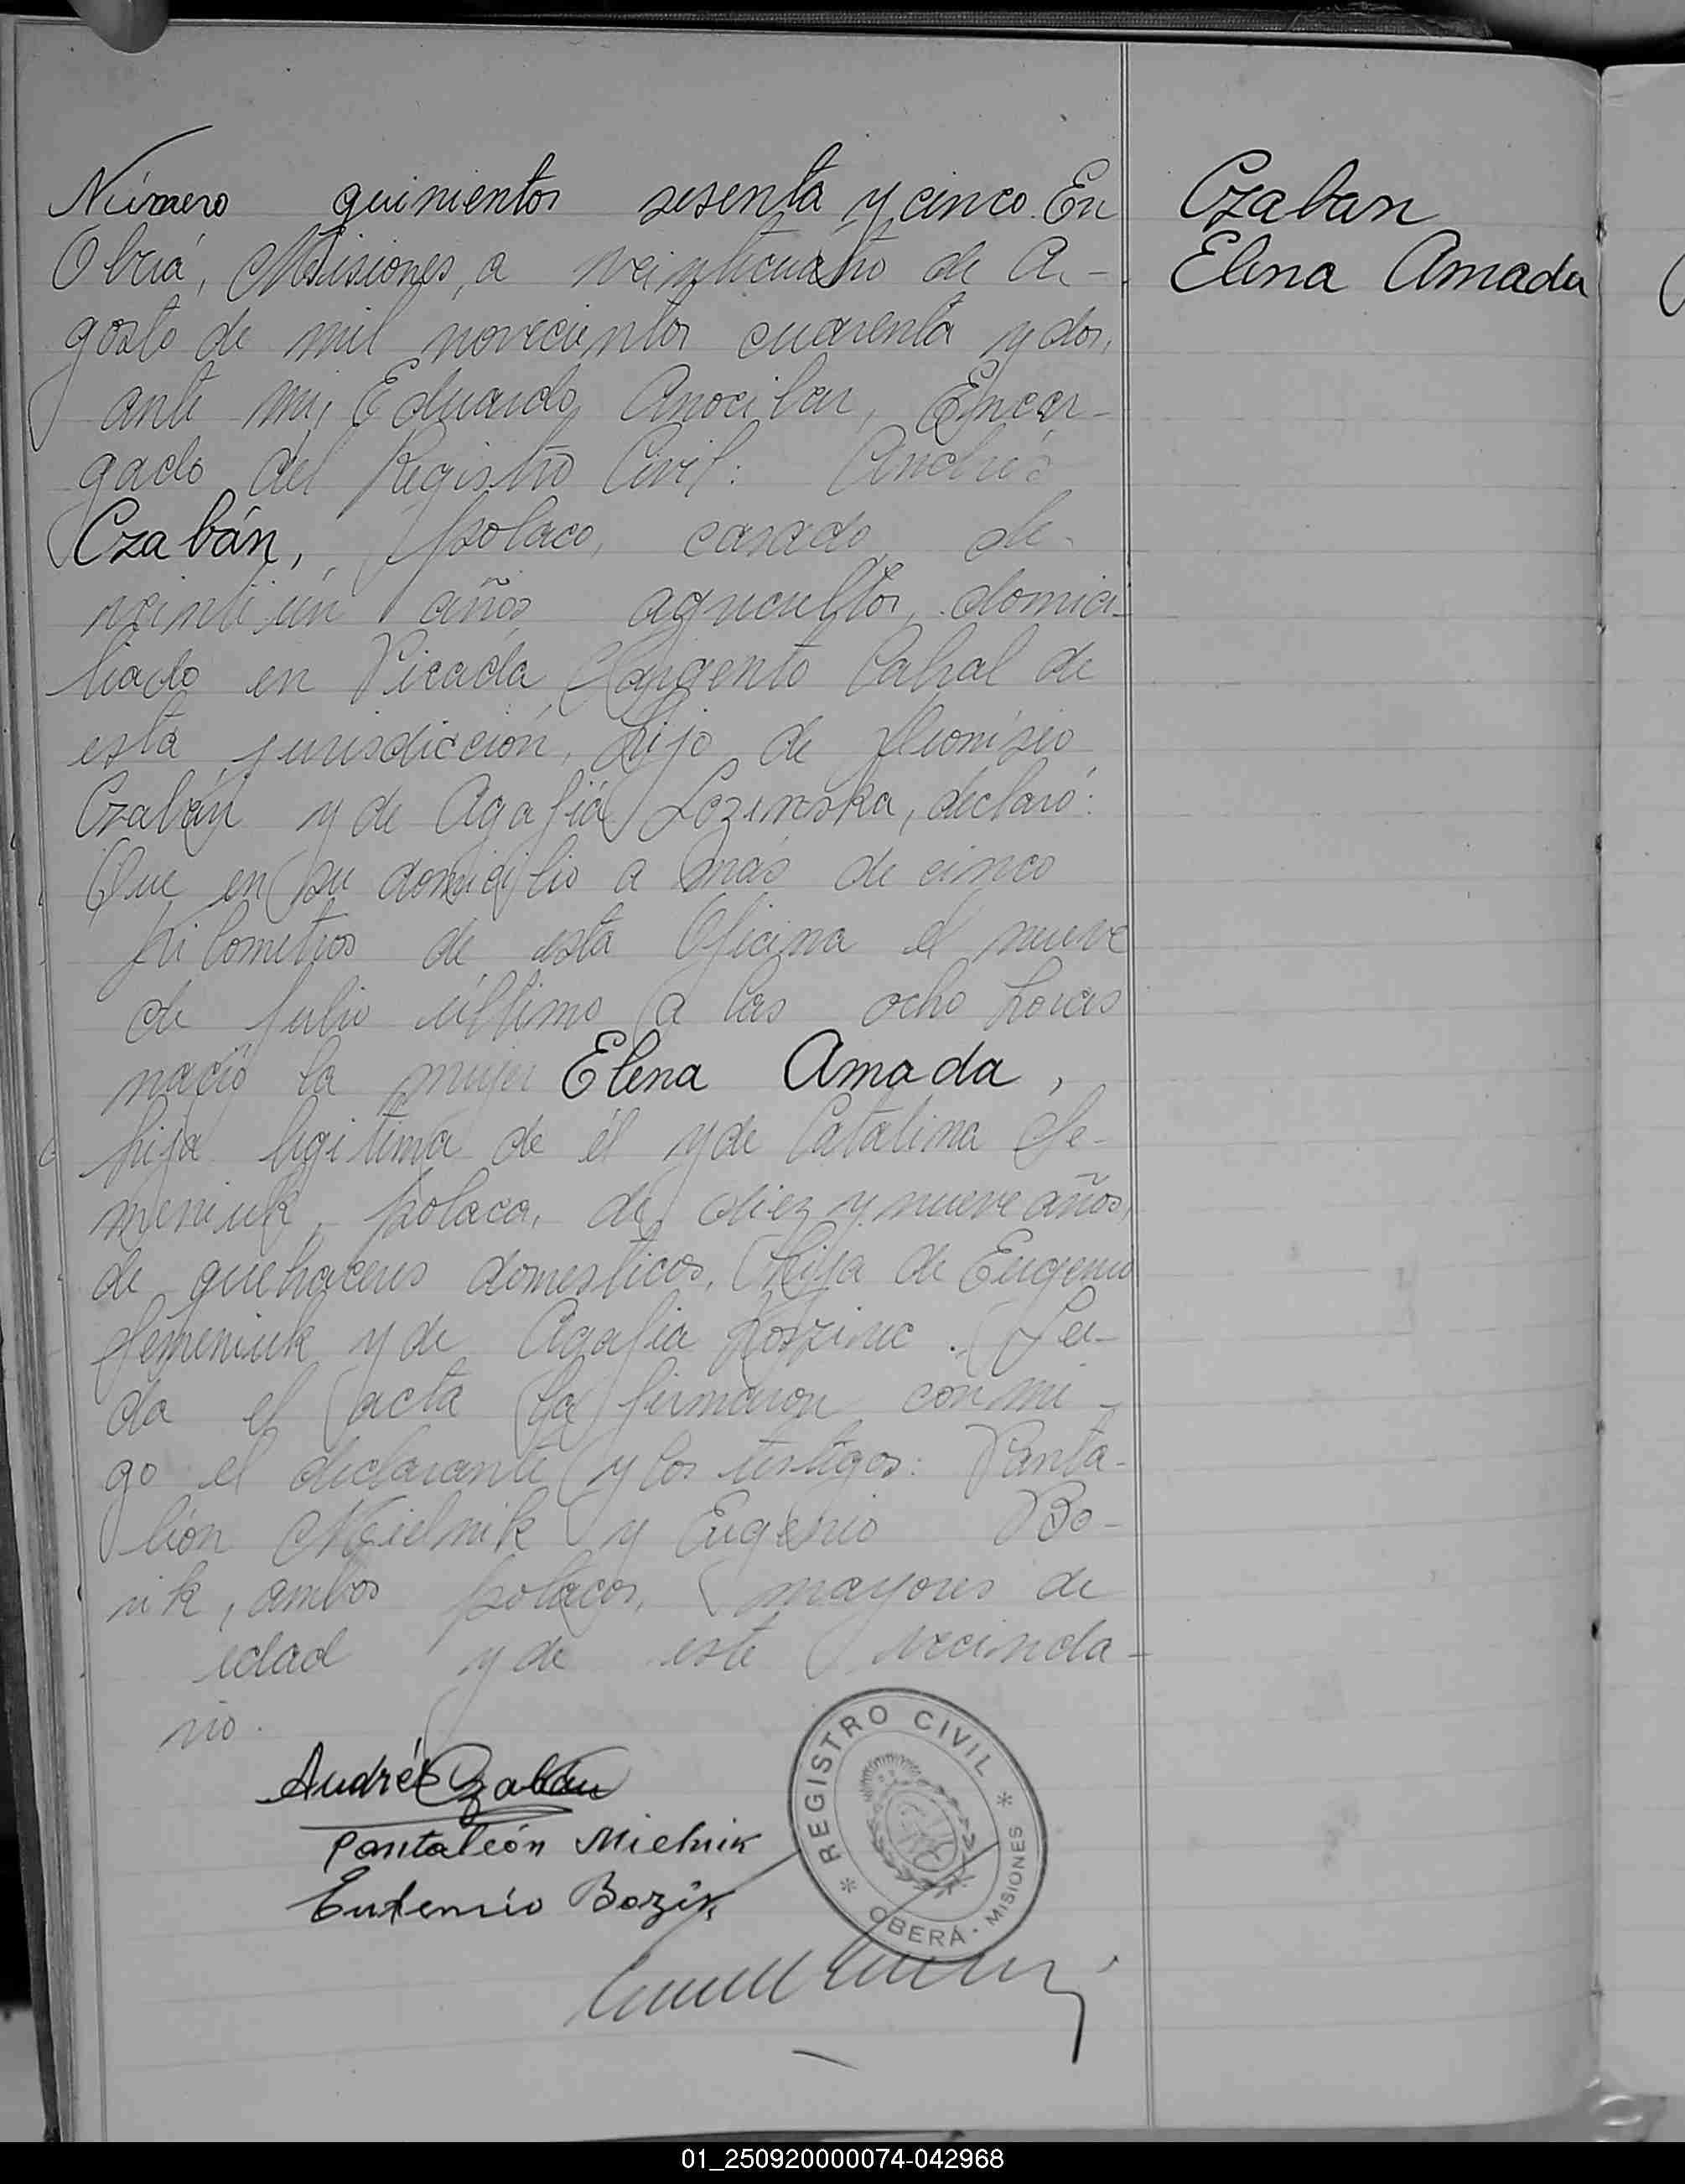 Número quinientos sesenta y cinco. En
Oberá, Misiones, a veinticuatro de A-
gosto de mil novecientos cuarenta y dos,
ante mi, Eduardo Anocibar, Encar-
gado del Registro Civil: Andrés
Czabán, polaco, casado, de
veintiún años, agricultor, domici-
liado en Picada Sargento Cabral de
esta jurisdicción, hijo de Dionisio
Czabán y de Agafia Lozinska, declaró:
Que en su domicilio a más de cinco
kilometros de esta Oficina el nueve
de Julio último a las ocho horas
nació la mujer Elena Amada,
hija legitima de él y de Catalina Se-
meniuk, polaca, de diez y nueve años,
de quehaceres domesticos, hija de Eugenio
Semeniuk y de Agafia. Lei-
da el acta la firmaron conmi-
go el declarante y los testigos: Panta-
león Mielnik y Eugenio Bo-
nik, ambos polacos, mayores de
edad y de este vecinda-
rio.
Andrés Czabán
Pantaleón Mielnik
Eufemio Bozik
REGISTRO CIVIL
OBERÁ - MISIONES
Czaban
Elena Amada
01_250920000074-042968